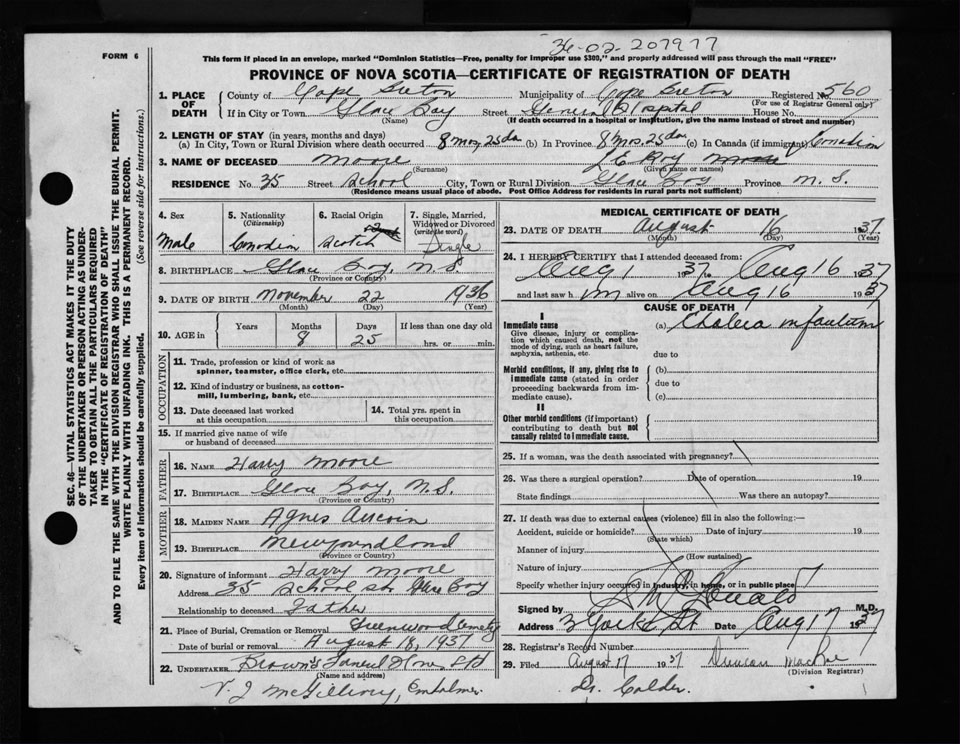 FORM 6
36-02-207977
This form if placed in an envelope, marked "Dominion Statistics—Free, penalty for improper use $300," and properly addressed will pass through the mail "FREE"
PROVINCE OF NOVA SCOTIA—CERTIFICATE OF REGISTRATION OF DEATH
1. PLACE OF DEATH
County of Cape Breton Municipality of Cape Breton Registered No. 560
(For use of Registrar General only)
If in City or Town Glace Bay Street General Hospital House No.
(Name) (If death occurred in a hospital or institution, give the name instead of street and number)
2. LENGTH OF STAY (in years, months and days)
(a) In City, Town or Rural Division where death occurred 8 mos 25 da (b) In Province 8 mos. 25 da (c) In Canada (if immigrant) Canadian
3. NAME OF DECEASED Moore Roy
(Surname) (Given name or names)
RESIDENCE No. 35 Street School City, Town or Rural Division Glace Bay Province N. S.
(Residence means usual place of abode. Post Office Address for residents in rural parts not sufficient)
4. Sex Male
5. Nationality (Citizenship) Canadian
6. Racial Origin Scotch
7. Single, Married, Widowed or Divorced (write the word) Single
8. BIRTHPLACE Glace Bay, N.S
(Province or Country)
9. DATE OF BIRTH November 22 1936
(Month) (Day) (Year)
10. AGE in Years Months 8 Days 25 If less than one day old hrs. or min.
OCCUPATION
11. Trade, profession or kind of work as spinner, teamster, office clerk, etc.
12. Kind of industry or business, as cotton-mill, lumbering, bank, etc.
13. Date deceased last worked at this occupation
14. Total yrs. spent in this occupation
15. If married give name of wife or husband of deceased
FATHER
16. NAME Harry Moore
17. BIRTHPLACE Glace Bay, N.S.
(Province or Country)
MOTHER
18. MAIDEN NAME Agnes Aucoin
19. BIRTHPLACE Newfoundland
(Province or Country)
20. Signature of informant Harry Moore
Address 35 School St. Glace Bay
Relationship to deceased Father
21. Place of Burial, Cremation or Removal Greenwood Cemetery
Date of burial or removal August 18, 1937
22. UNDERTAKER Brown's Funeral Home Ltd
(Name and address)
V. J McGillivry, Embalmer.
MEDICAL CERTIFICATE OF DEATH
23. DATE OF DEATH August 16 1937
(Month) (Day) (Year)
24. I HEREBY CERTIFY that I attended deceased from:
Aug 1 1937 to Aug 16 1937
and last saw him alive on Aug 16 1937
CAUSE OF DEATH
I
Immediate cause
Give disease, injury or complication which caused death, not the mode of dying, such as heart failure, asphyxia, asthenia, etc.
(a) Cholera infantum
due to
Morbid conditions, if any, giving rise to immediate cause (stated in order proceeding backwards from immediate cause).
(b)
due to
(c)
II
Other morbid conditions (if important) contributing to death but not causally related to immediate cause.
25. If a woman, was the death associated with pregnancy?
26. Was there a surgical operation? Date of operation 19
State findings Was there an autopsy?
27. If death was due to external causes (violence) fill in also the following:—
Accident, suicide or homicide? Date of injury 19
(State which)
Manner of injury
(How sustained)
Nature of injury
Specify whether injury occurred in industry, in home, or in public place
Signed by M.D.
Address 3 York St Date Aug 17 1937
28. Registrar's Record Number
29. Filed August 17 1937 Duncan MacRae
(Division Registrar)
Dr. Calder.
SEC. 46—VITAL STATISTICS ACT MAKES IT THE DUTY
OF THE UNDERTAKER OR PERSON ACTING AS UNDERTAKER TO OBTAIN ALL THE PARTICULARS REQUIRED
IN THE "CERTIFICATE OF REGISTRATION OF DEATH"
AND TO FILE THE SAME WITH THE DIVISION REGISTRAR WHO SHALL ISSUE THE BURIAL PERMIT.
WRITE PLAINLY WITH UNFADING INK. THIS IS A PERMANENT RECORD.
Every item of information should be carefully supplied. (See reverse side for instructions.)